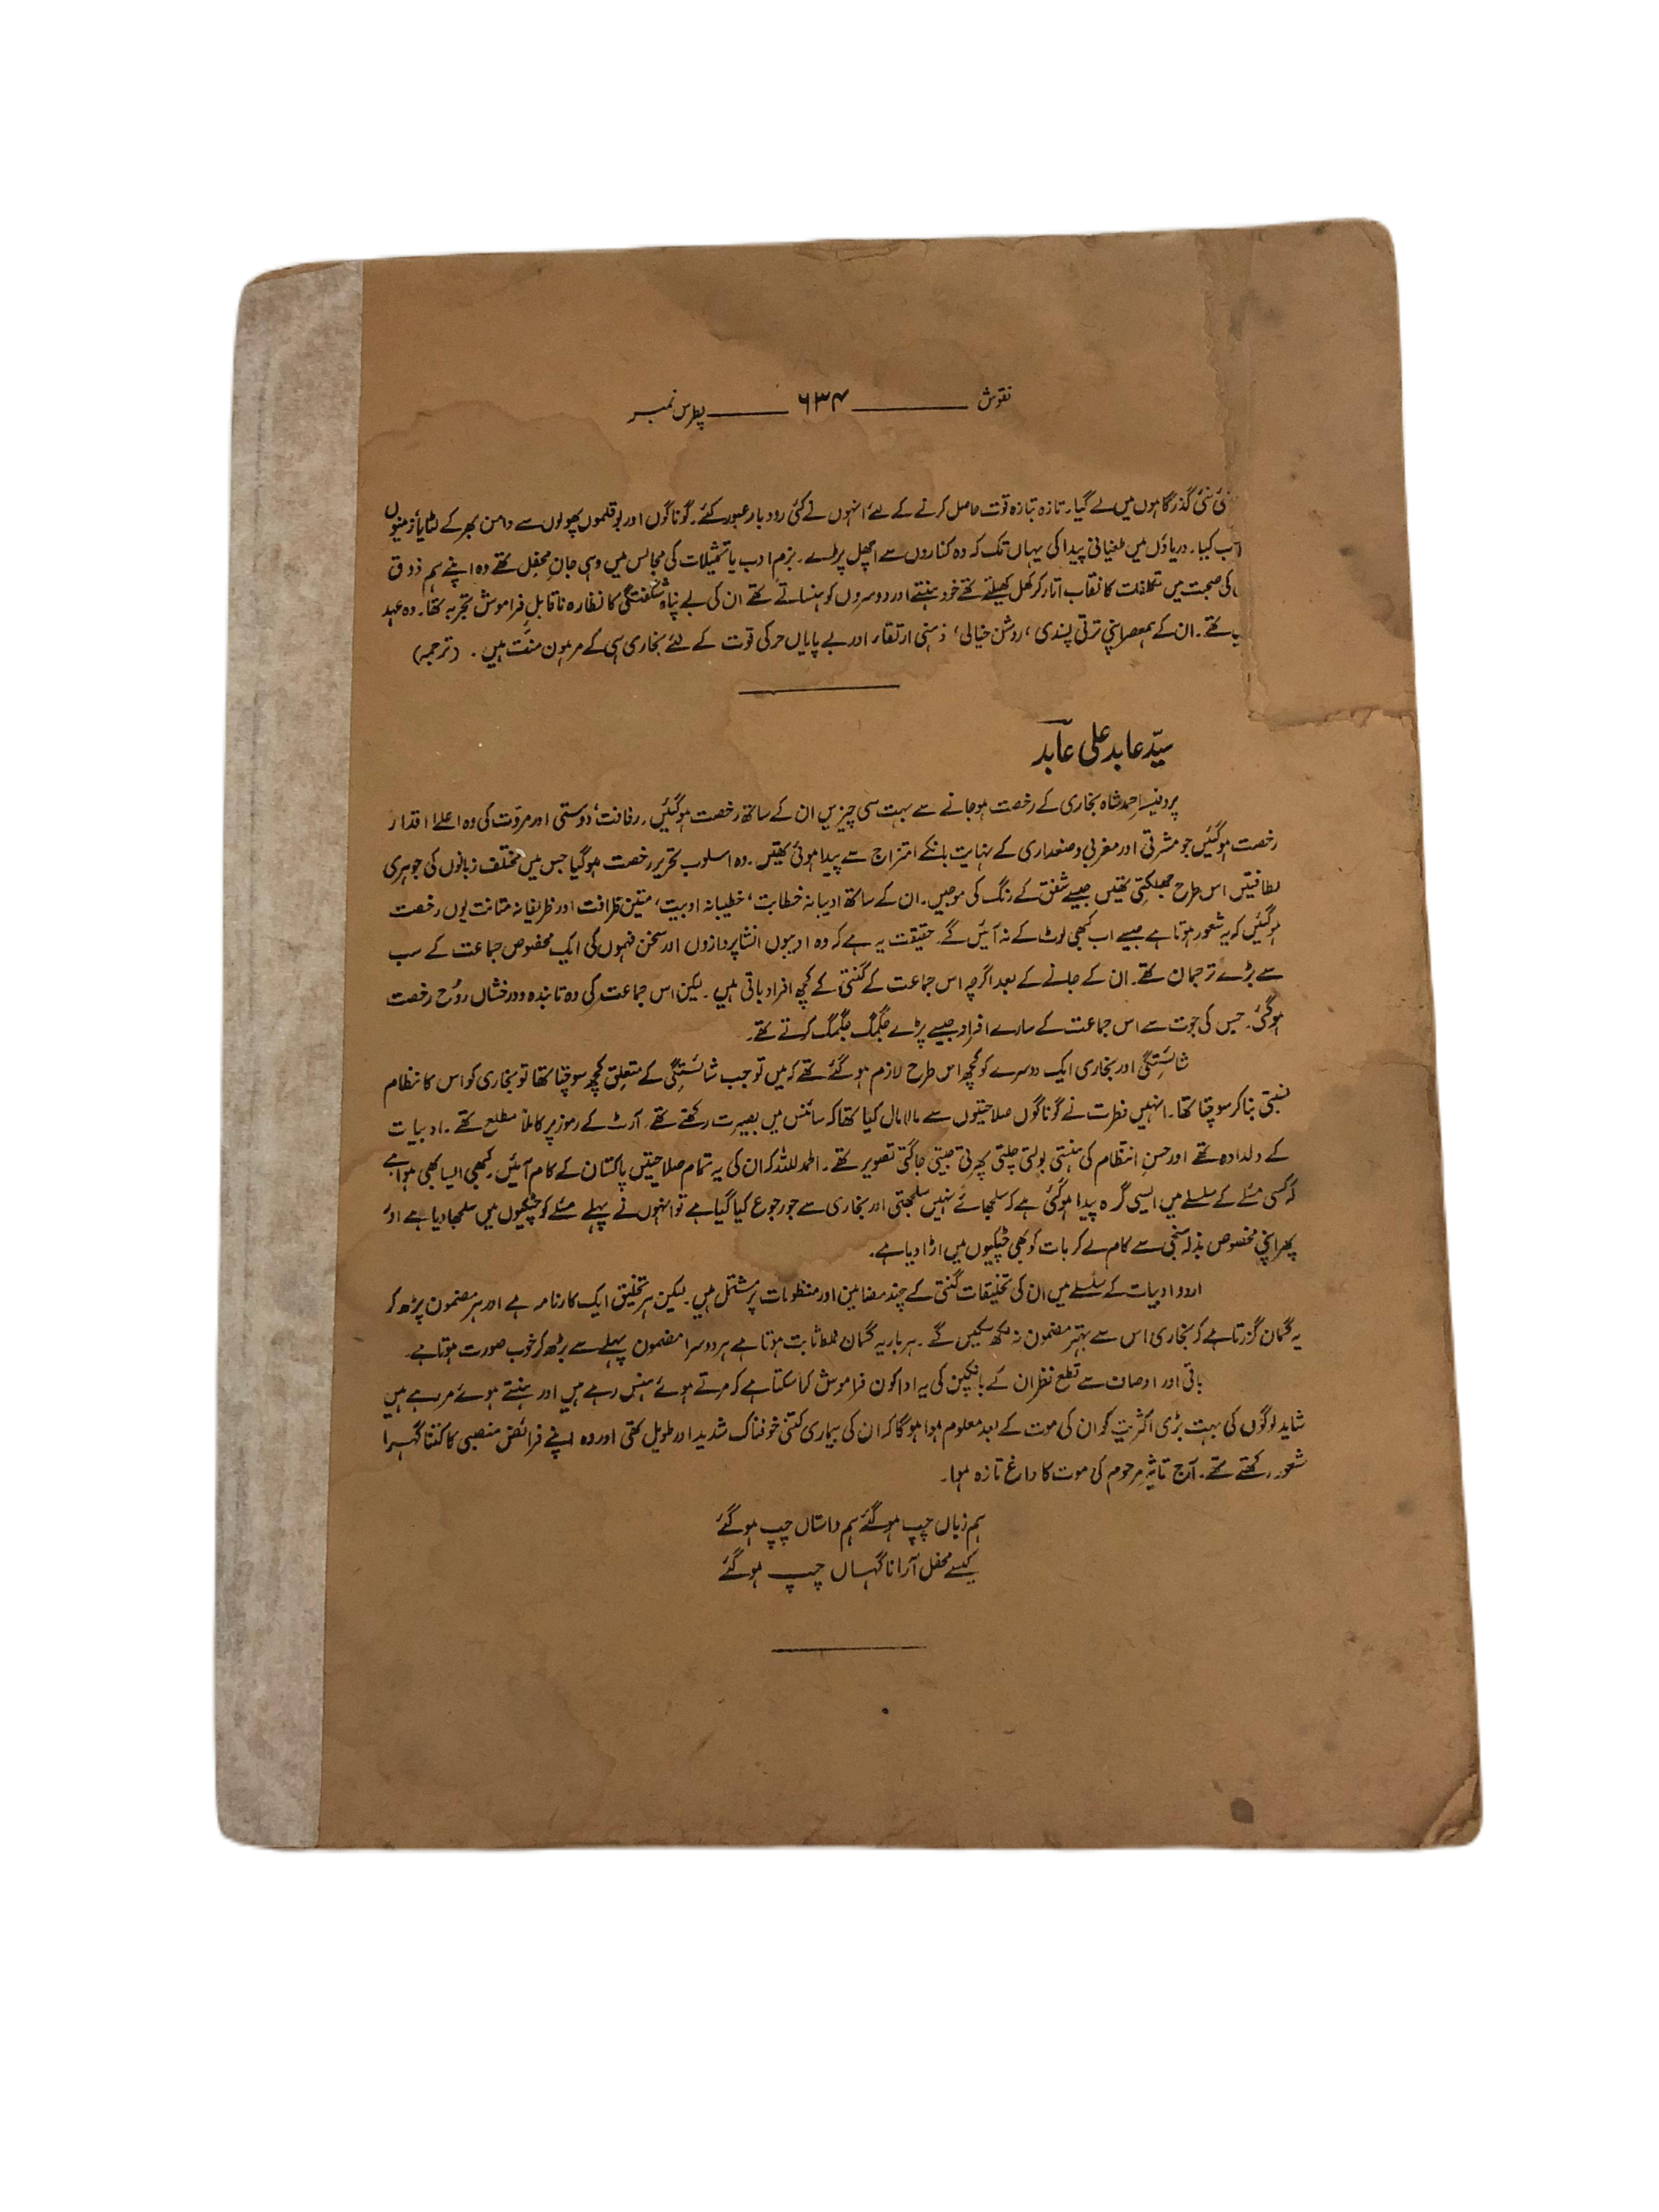 نقوش ـــــــــ ۶۳۴ ـــــــــ پطرس نمبر
نئی گذرگاہوں میں لے گیا۔ تازہ بتازہ قوت حاصل کرنے کے لئے انہوں نے کئی رودبار عبور کئے۔ گوناگوں اور بوقلموں پھولوں سے دامن بھر کے لٹایا۔ زمینوں
کیا۔ دریاؤں میں طغیانی پیدا کی یہاں تک کہ وہ کناروں سے اچھل پڑے۔ بزم ادب یا تمثیلات کی مجالس میں وہی جانِ محفل تھے وہ اپنے ہم ذوق
کی صحبت میں تکلفات کا نقاب اتار کر کھل کھیلتے تھے خود ہنستے اور دوسروں کو ہنساتے تھے ان کی بے پناہ شگفتگی کا نظارہ ناقابلِ فراموش تجربہ تھا۔ وہ عہد
تھے۔ ان کے ہمعصر اپنی ترقی پسندی، روشن خیالی، ذہنی ارتقاء اور بے پایاں حرکی قوت کے لئے بخاری ہی کے مرہون منت ہیں۔ (ترجمہ)
سیّد عابد علی عابد
پروفیسر احمد شاہ بخاری کے رخصت ہو جانے سے بہت سی چیزیں ان کے ساتھ رخصت ہو گئیں۔ رفاقت، دوستی اور مروّت کی وہ اعلےٰ اقدار
رخصت ہو گئیں جو مشرقی اور مغربی وضعداری کے نہایت بانکے امتزاج سے پیدا ہوئی تھیں۔ وہ اسلوب تحریر رخصت ہو گیا جس میں مختلف زبانوں کی جوہری
لطافتیں اس طرح جھلکتی تھیں جیسے شفق کے رنگ کی موجیں۔ ان کے ساتھ ادیبانہ خطابت، خطیبانہ ادبیت، متین ظرافت اور ظریفانہ متانت یوں رخصت
ہو گئیں کہ یہ شعور ہوتا ہے جیسے اب کبھی لوٹ کے نہ آئیں گے۔ حقیقت یہ ہے کہ وہ ادیبوں انشا پردازوں اور سخن فہموں کی ایک مخصوص جماعت کے سب
سے بڑے ترجمان تھے۔ ان کے جانے کے بعد اگرچہ اس جماعت کے گنتی کے کچھ افراد باقی ہیں۔ لیکن اس جماعت کی وہ تابندہ و درخشاں روُح رخصت
ہو گئی۔ جس کی جوت سے اس جماعت کے سارے افراد جیسے پڑے جگمگ جگمگ کرتے تھے۔
شائستگی اور بخاری ایک دوسرے کو کچھ اس طرح لازم ہو گئے تھے کہ میں تو جب شائستگی کے متعلق کچھ سوچتا تھا تو بخاری کو اس کا نظام
نسبتی بنا کر سوچتا تھا۔ انہیں فطرت نے گوناگوں صلاحیتوں سے مالا مال کیا تھا کہ سائنس میں بصیرت رکھتے تھے۔ آرٹ کے رموز پر کاملاً مطلع تھے۔ ادبیات
کے دلدادہ تھے اور حسنِ انتظام کی ہنستی بولتی چلتی پھرتی جیتی جاگتی تصویر تھے۔ الحمد للہ کہ ان کی یہ تمام صلاحیتیں پاکستان کے کام آئیں۔ کبھی ایسا بھی ہوا ہے
کہ کسی مسئلے کے سلسلے میں ایسی گرہ پیدا ہو گئی ہے کہ سلجھائے نہیں سلجھتی اور بخاری سے جو رجوع کیا گیا ہے تو انہوں نے پہلے مسئلے کو چٹکیوں میں سلجھا دیا ہے اور
پھر اپنی مخصوص بذلہ سنجی سے کام لے کر بات کو بھی چٹکیوں میں اڑا دیا ہے۔
اردو ادبیات کے سلسلے میں ان کی تخلیقات گنتی کے چند مضامین اور منظومات پر مشتمل ہیں۔ لیکن ہر تخلیق ایک کارنامہ ہے اور ہر مضمون پڑھ کر
یہ گمان گزرتا ہے کہ بخاری اس سے بہتر مضمون نہ لکھ سکیں گے۔ ہر بار یہ گمان غلط ثابت ہوتا ہے ہر دوسرا مضمون پہلے سے بڑھ کر خوب صورت ہوتا ہے۔
باقی اور اوصاف سے قطع نظر ان کے بانکپن کی یہ ادا کون فراموش کر سکتا ہے کہ مرتے ہوئے ہنس رہے ہیں اور ہنستے ہوئے مر رہے ہیں
شاید لوگوں کی بہت بڑی اکثریت کو ان کی موت کے بعد معلوم ہوا ہو گا کہ ان کی بیماری کتنی خوفناک شدید اور طویل تھی اور وہ اپنے فرائض منصبی کا کتنا گہرا
شعور رکھتے تھے۔ آج تاثیر مرحوم کی موت کا داغ تازہ ہوا۔
ہم زباں چپ ہو گئے ہم داستاں چپ ہو گئے
کیسے محفل آرا ناگہاں چپ ہو گئے